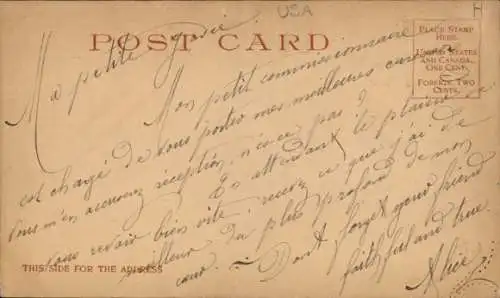 USA
H
POST CARD
PLACE STAMP
HERE.
UNITED STATES
AND CANADA,
ONE CENT.
FOREIGN, TWO
CENTS.
Ma petite
Mon petit commissionnaire
est chargé de vous porter mes meilleures
vous m'en accuserez réception, n'est ce pas?
En attendant le plaisir de
vous revoir bien vite, recevez ce que j'ai de
meilleur du plus profond de mon
cœur. — Don't forget your friend
faithful and true
Alice
THIS SIDE FOR THE ADDRESS